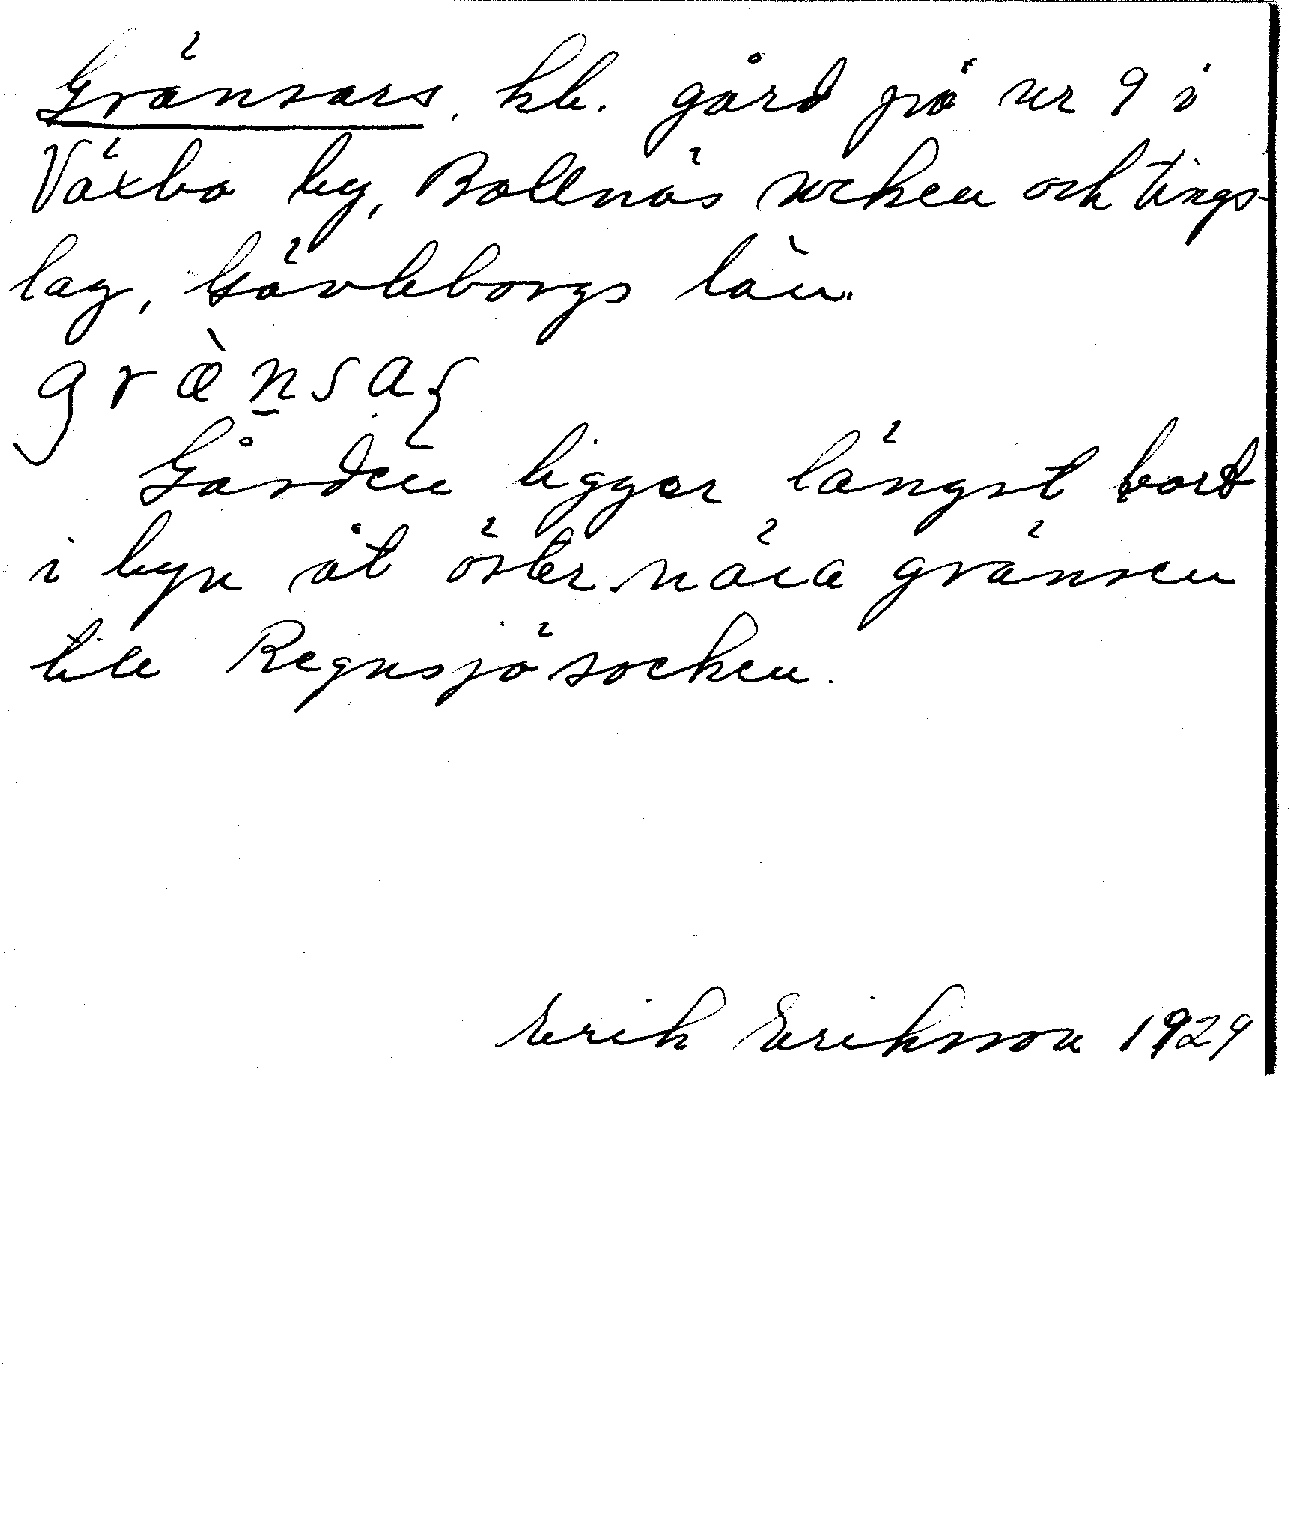 Gränsars, hb. gård på nr 9 i
Växbo by, Bollnäs socken och tings-
lag, Gävleborgs län.
grænsaʂ
Gården ligger längst bort
i byn åt öster nära gränsen
till Regnsjö socken.
Erik Eriksson 1929